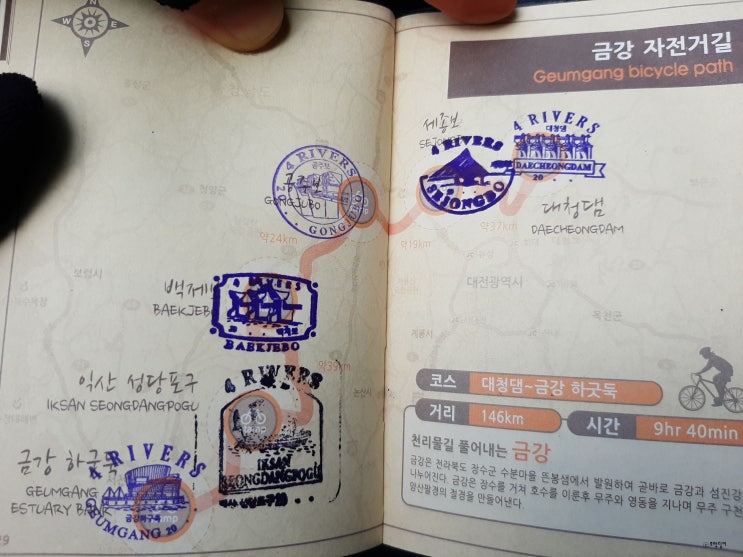 N
E
S
W
4 RIVERS
공주보
GONGJUBO
20
GONGJUBO
약24km
백제
BAEKJEBO
4 RIVERS
BAEKJEBO
약39km
익산 성당포구
IKSAN SEONGDANGPOGU
4 RIVERS
IKSAN
SEONGDANGPOGU
금강 하굿둑
GEUMGANG
ESTUARY BANK
4 RIVERS
금강하구둑
GEUMGANG 20
금강 자전거길
Geumgang bicycle path
세종보
4 RIVERS
SEJONGBO
4 RIVERS
대청댐
DAECHEONGDAM
20
대청댐
DAECHEONGDAM
약37km
약19km
대전광역시
옥천군
계룡시
보령시
논산시
코스 대청댐~금강 하굿둑
거리 146km 시간 9hr 40min
천리물길 풀어내는 금강
금강은 전라북도 장수군 수분마을 뜬봉샘에서 발원하여 곧바로 금강과 섬진강
나누어진다. 금강은 장수를 거쳐 호수를 이룬후 무주와 영동을 지나며 무주 구천
양산팔경의 절경을 만들어낸다.